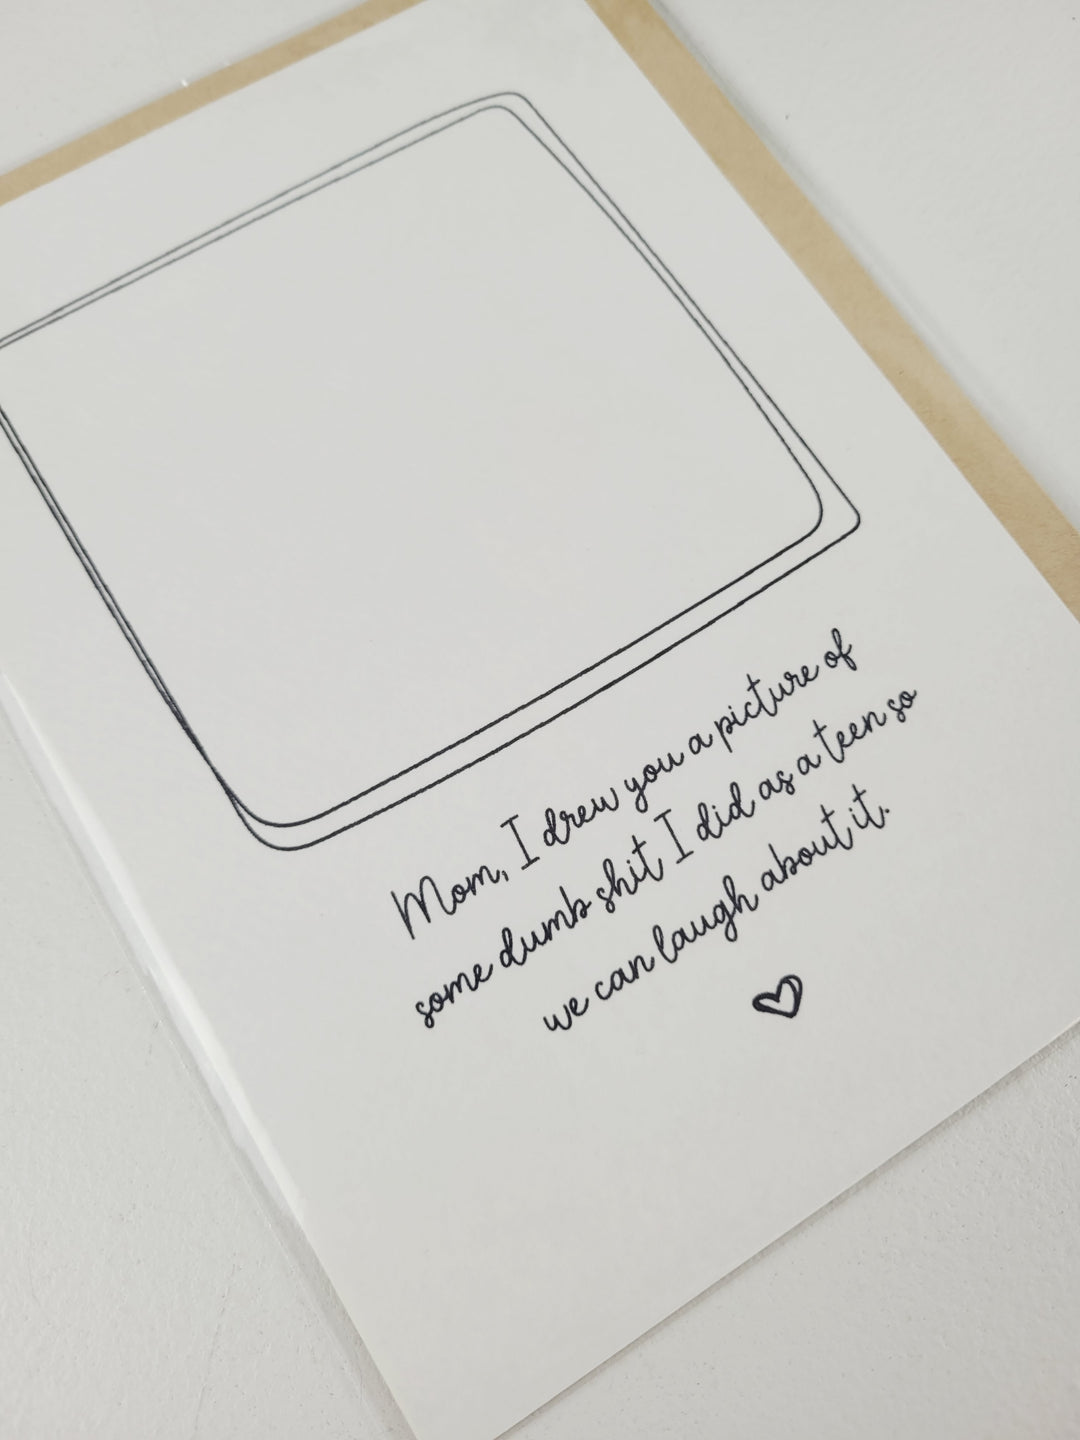 Mom, I drew you a picture of
some dumb shit I did as a teen so
we can laugh about it.